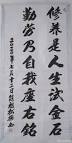 修养是人生试金石
勤劳乃自我座右铭